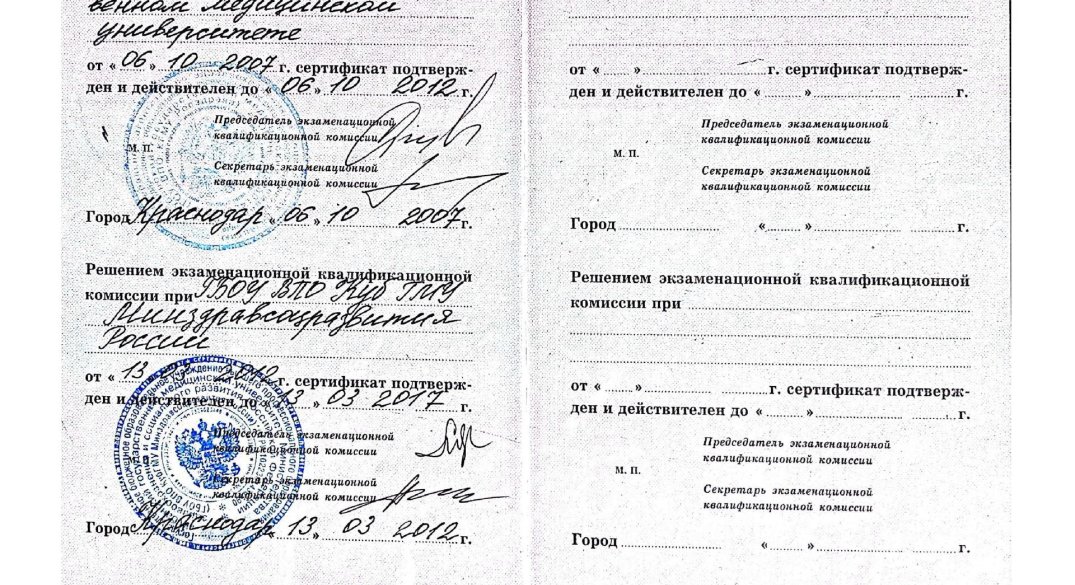 венном медицинском
университете
от « 06 » 10 2007 г. сертификат подтверж-
ден и действителен до « 06 » 10 2012 г.
Председатель экзаменационной
квалификационной комиссии
М. П.
Секретарь экзаменационной
квалификационной комиссии
Город Краснодар « 06 » 10 2007 г.
Решением экзаменационной квалификационной
комиссии при ГБОУ ВПО КубГМУ
Минздравсоцразвития
России
от « 13 2012 г. сертификат подтверж-
ден и действителен до « 13 » 03 2017 г.
Председатель экзаменационной
квалификационной комиссии
М. П.
Секретарь экзаменационной
квалификационной комиссии
Город Краснодар « 13 » 03 2012 г.
от « » г. сертификат подтверж-
ден и действителен до « » г.
Председатель экзаменационной
квалификационной комиссии
М. П.
Секретарь экзаменационной
квалификационной комиссии
Город « » г.
Решением экзаменационной квалификационной
комиссии при
от « » г. сертификат подтверж-
ден и действителен до « » г.
Председатель экзаменационной
квалификационной комиссии
М. П.
Секретарь экзаменационной
квалификационной комиссии
Город « » г.